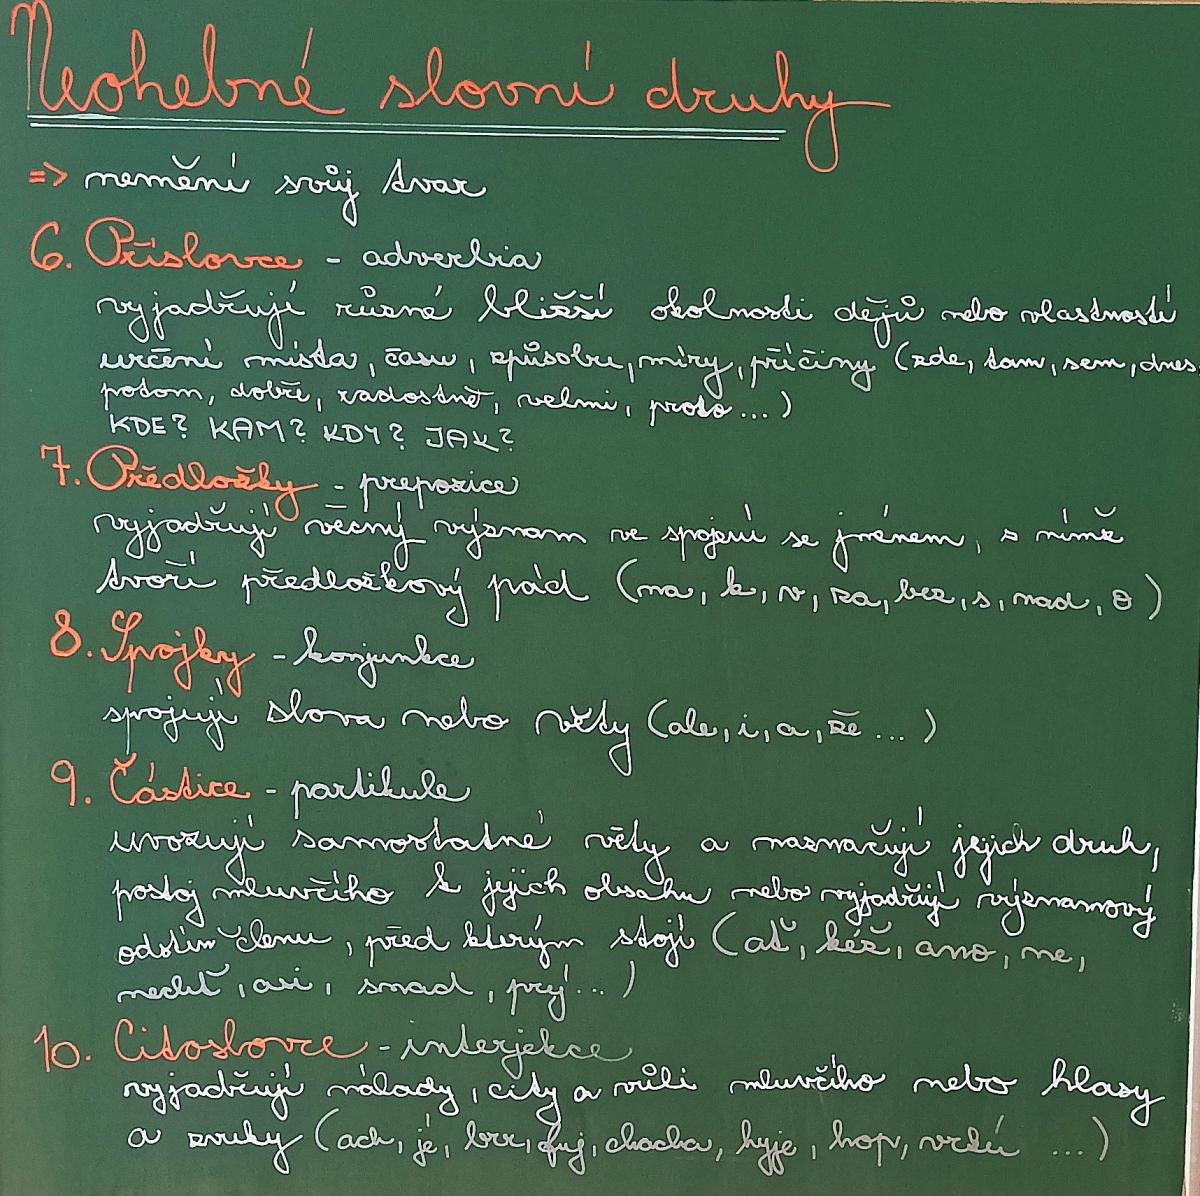 Neohebné slovní druhy
=> nemění svůj tvar
6. Příslovce - adverbia
vyjadřují různé bližší okolnosti dějů nebo vlastností
určení místa, času, způsobu, míry, příčiny (zde, tam, sem, dnes
potom, dobře, radostně, velmi, proto...)
KDE? KAM? KDY? JAK?
7. Předložky - prepozice
vyjadřují věcný význam ve spojení se jménem, s nímž
tvoří předložkový pád (na, k, v, za, bez, s, nad, o)
8. Spojky - konjunkce
spojují slova nebo věty (ale, i, a, že ...)
9. Částice - partikule
uvozují samostatné věty a naznačují jejich druh,
postoj mluvčího k jejich obsahu nebo vyjadřují významový
odstín členu, před kterým stojí (ať, kéž, ano, ne,
nechť, asi, snad, prý...)
10. Citoslovce - interjekce
vyjadřují nálady, city a vůli mluvčího nebo hlasy
a zvuky (ach, jé, brr, fuj, chacha, hyje, hop, vrků ...)